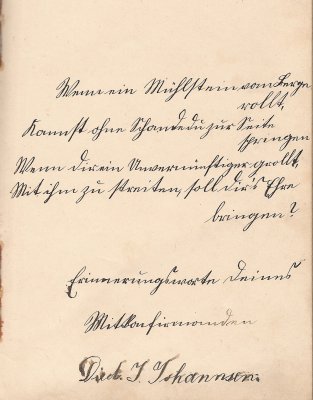 Wenn ein Mühlstein vom Berge
rollt,
Kannst ohne Schande du zur Seite
springen
Wenn dir ein Unvernünftiger grollt,
Mit ihm zu streiten, soll dir's Ehre
bringen?
Erinnerungsworte Deines
Mitkonfirmanden
J. Johannsen.